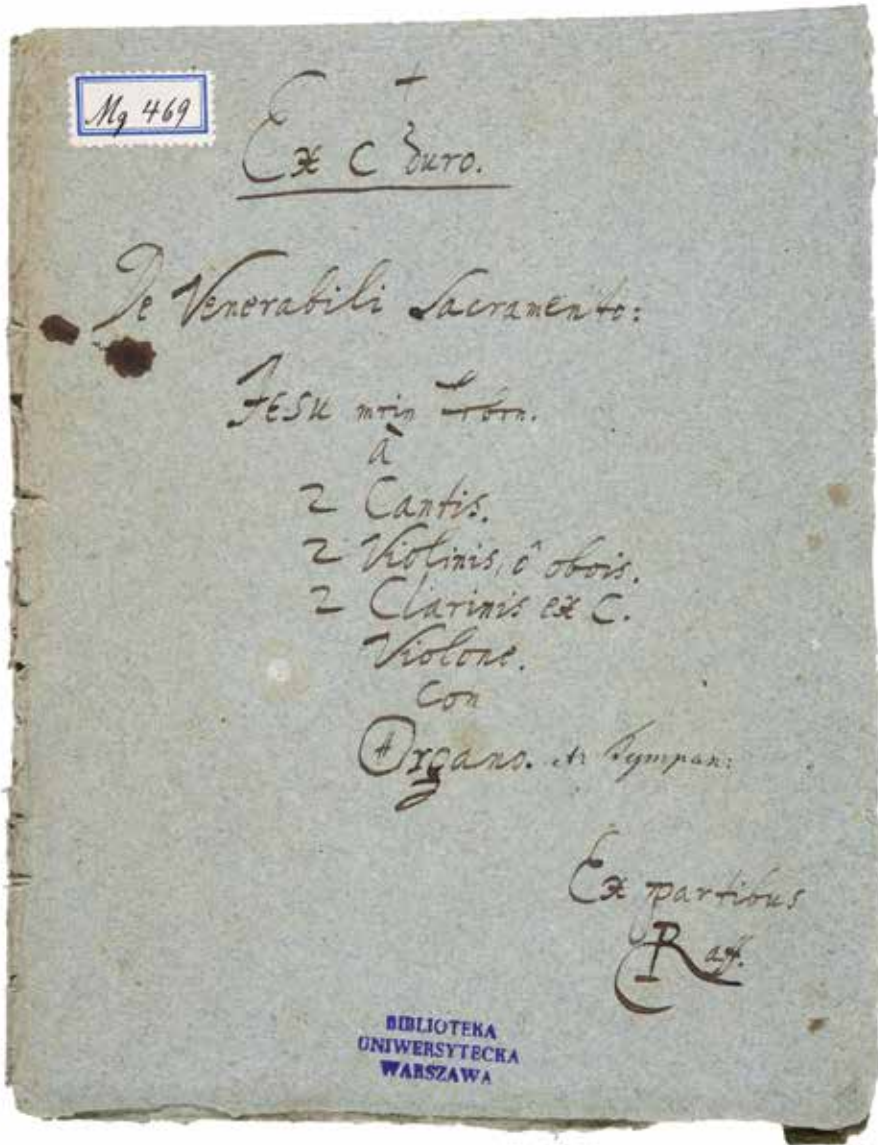 Mq 469
Ex C duro.
De Venerabili Sacramento:
JESU mein
à
2 Cantis.
2 Violinis, ô obois.
2 Clarinis ex C.
Violone.
con
Organo. et Tympan:
Ex partibus
Raff.
BIBLIOTEKA
UNIWERSYTECKA
WARSZAWA